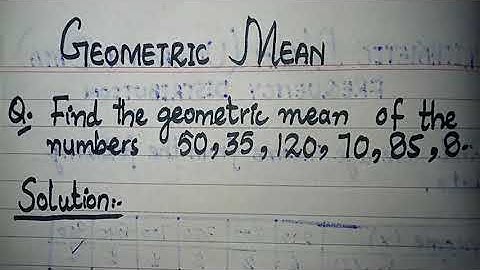 GEOMETRIC MEAN
Q. Find the geometric mean of the
numbers 50, 35, 120, 70, 85, 8.
Solution:-